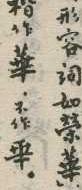 形容詞如榮華
楷作華不作華。